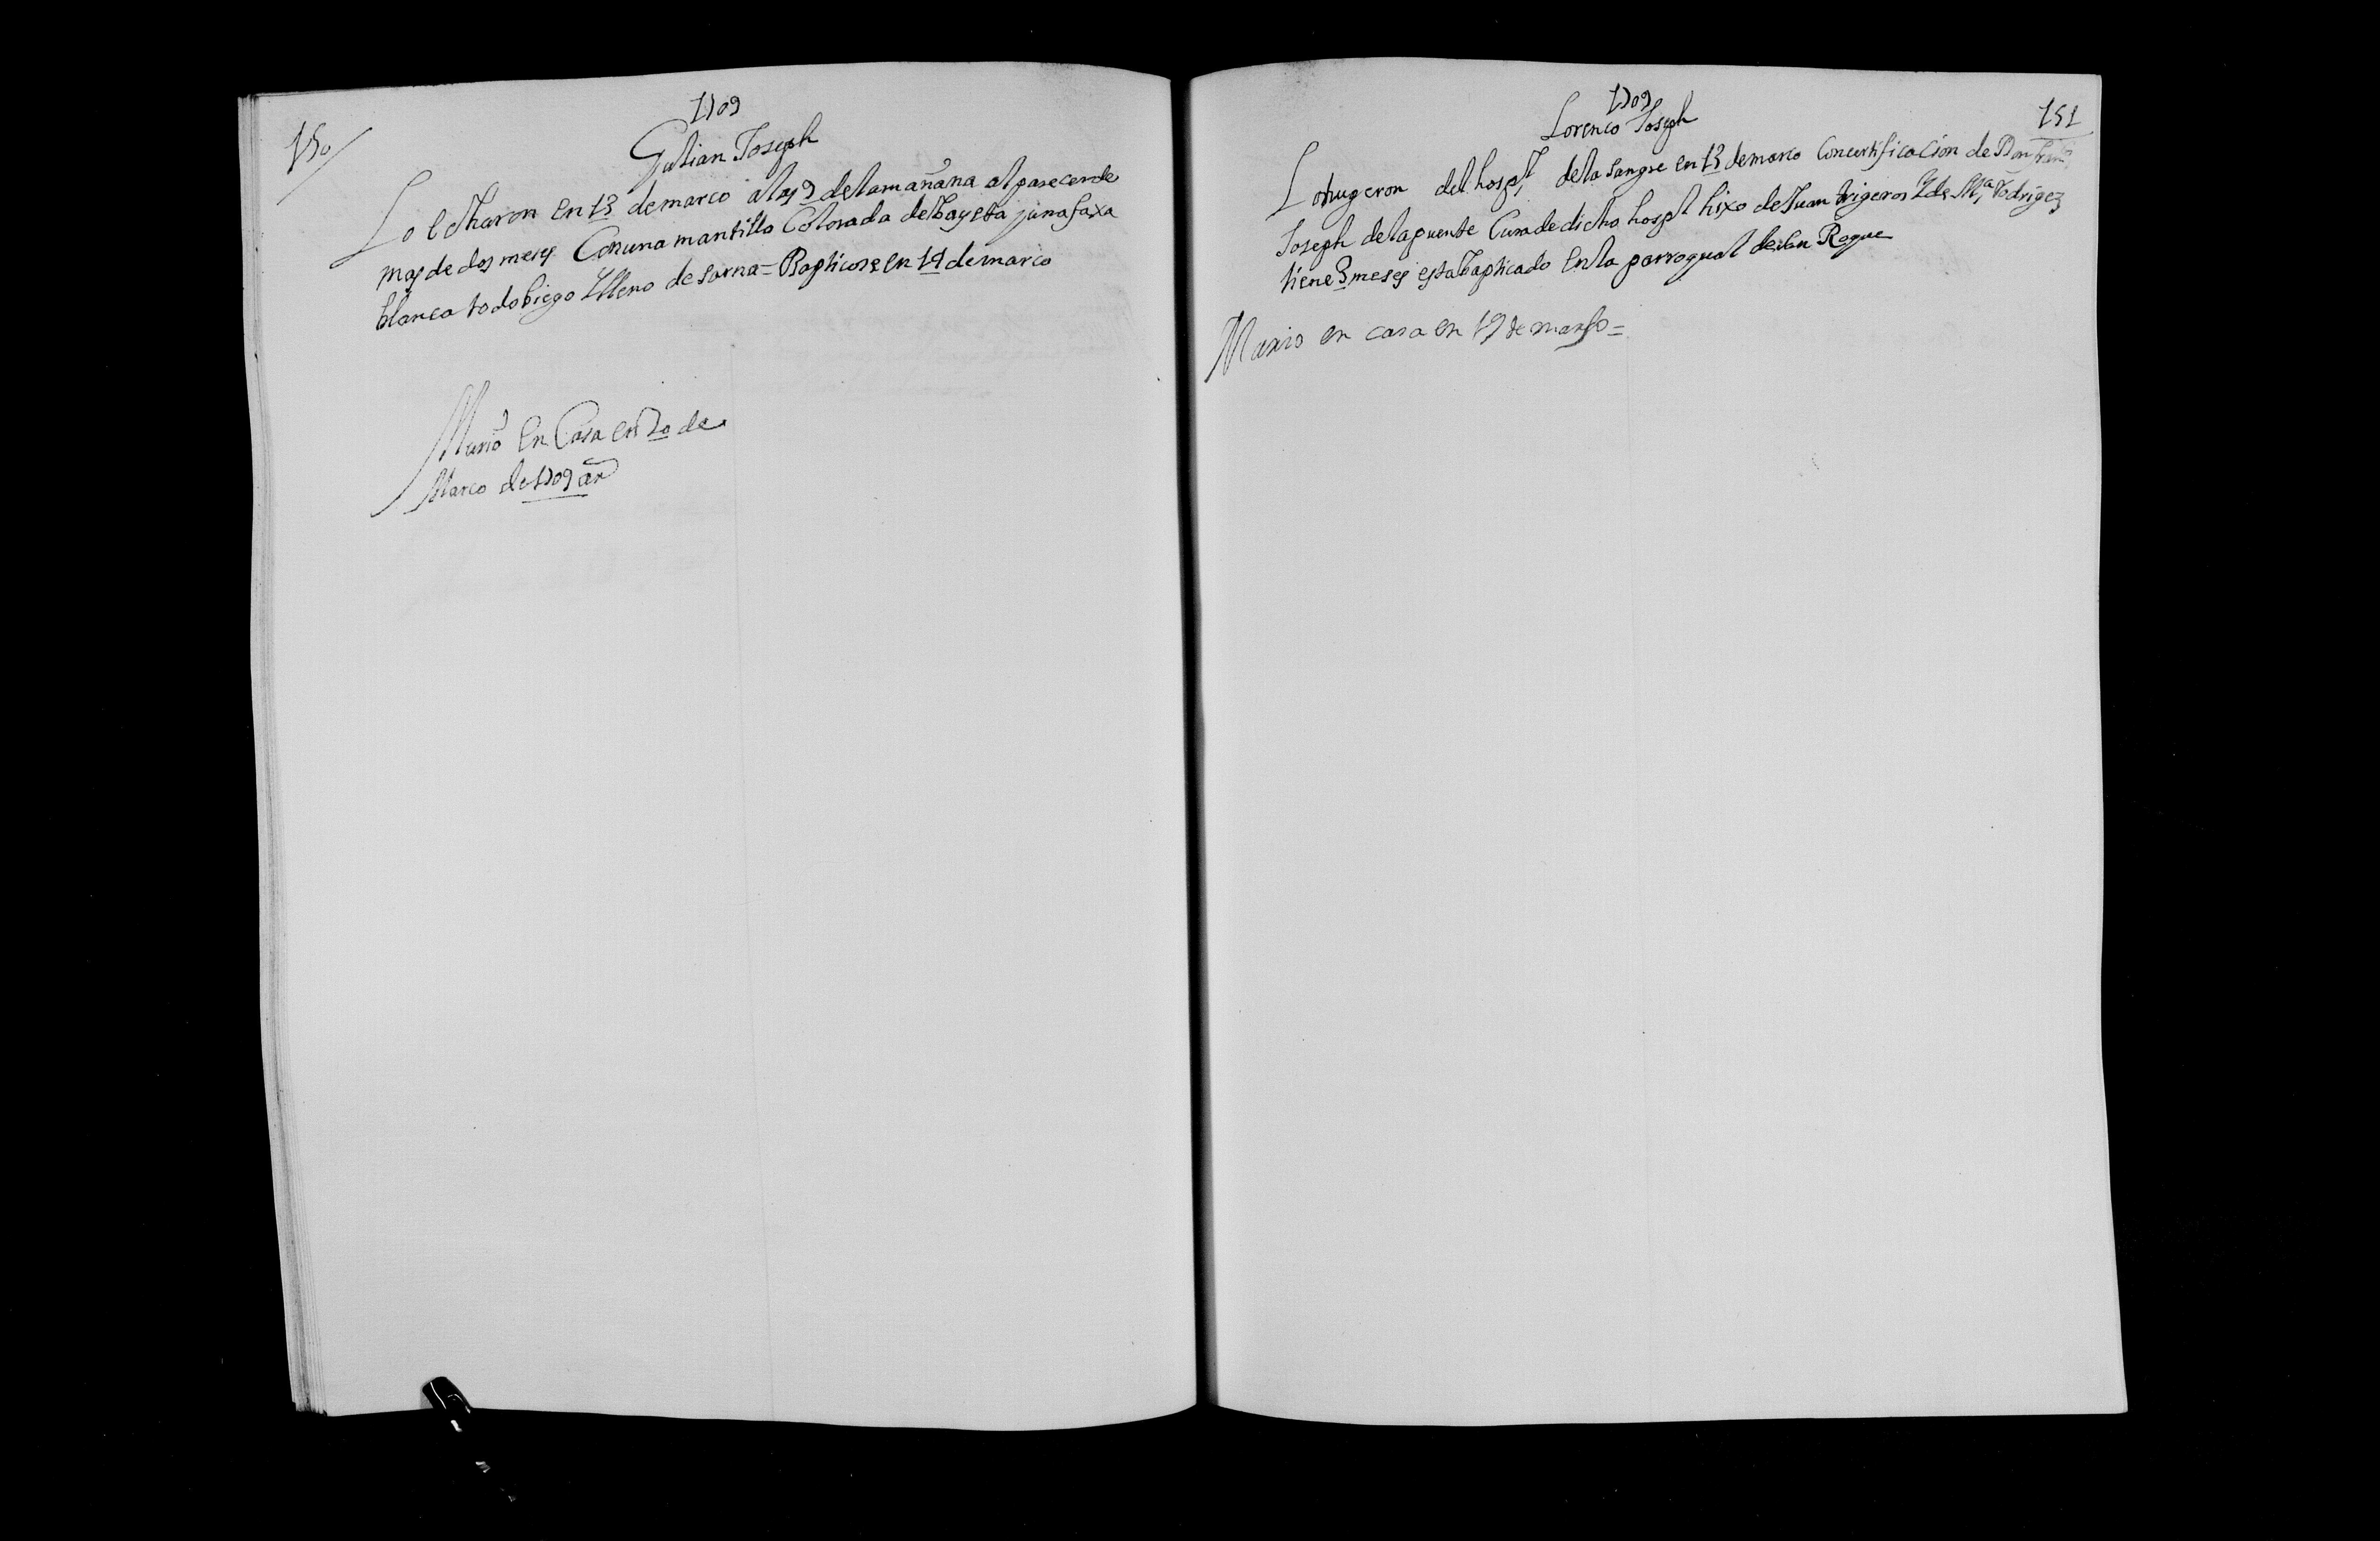 150
1709
Gulian Joseph
Lo echaron en 13 de marco a las 9 de la mañana al parecer de
mas de dos meses Con una mantilla Colorada de bayeta y una faxa
blanca todo biego Y lleno de sarna = Bapticose en 14 de marco
Murio en Casa en 20 de
Marco de 1709 añ
1709
151
Lorenco Joseph
Lo trugeron del hospl de la sangre en 13 de marco Con certificacion de Don
Joseph de la puente Cura de dicho hospl hixo de Juan trigeros Y de Ma Rodrigez
tiene 3 meses esta bapticado En la parroqual de san Roque
Murio en casa en 19 de marso =